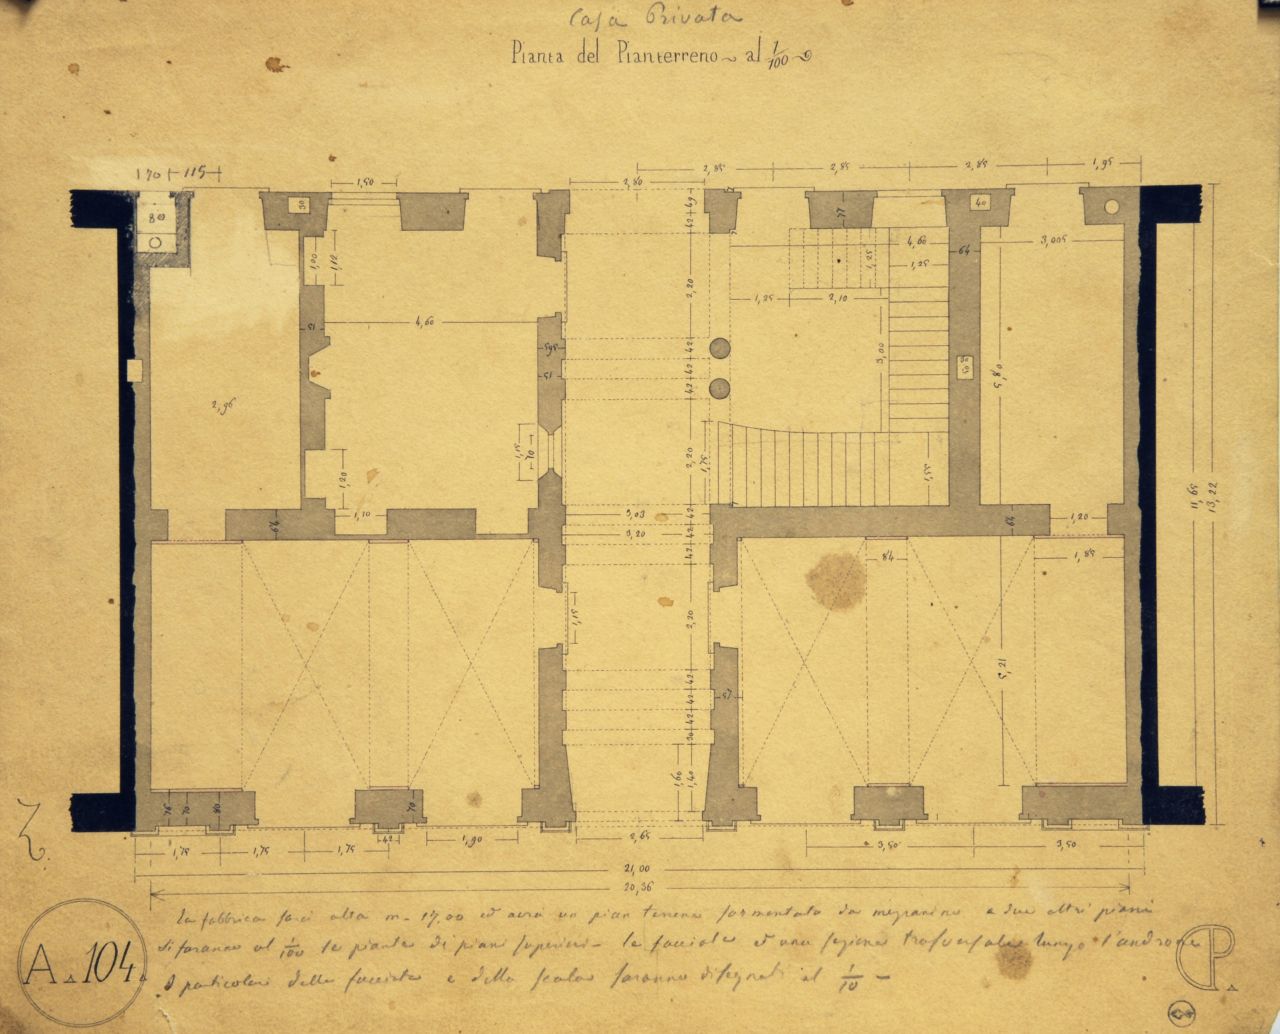 Casa Privata
Pianta del Pianterreno ~ al 1/100
1 70 115
1,50
2,80
2,85
2,85
2,85
1,95
80
30
77
40
42 49
4,60
1,25
1,25
64
3,005
1,00
1,12
2,20
1,25
2,10
51
4,60
595
51
42
42
3,00
50
5,80
2,96
1,15
70
2,20
1,75
1,55
1,20
1,10
64
3,03
3,20
42
42
64
1,20
84
1,85
1,15
2,20
5,21
11,65
13,22
57
42
42
30
1,60
1,40
76
70
80
70
1,75
1,75
1,75
42
1,90
2,65
3,50
3,50
21,00
20,36
La fabbrica sarà alta m. 17,00 ed avrà un pian terreno sormontato da mezzanino e due altri piani
Si faranno al 1/100 le piante di piani superiori - le facciate ed una sezione trasversale lungo l'androne
I particolari della facciata e della scala saranno disegnati al 1/10 -
A. 104.
CP